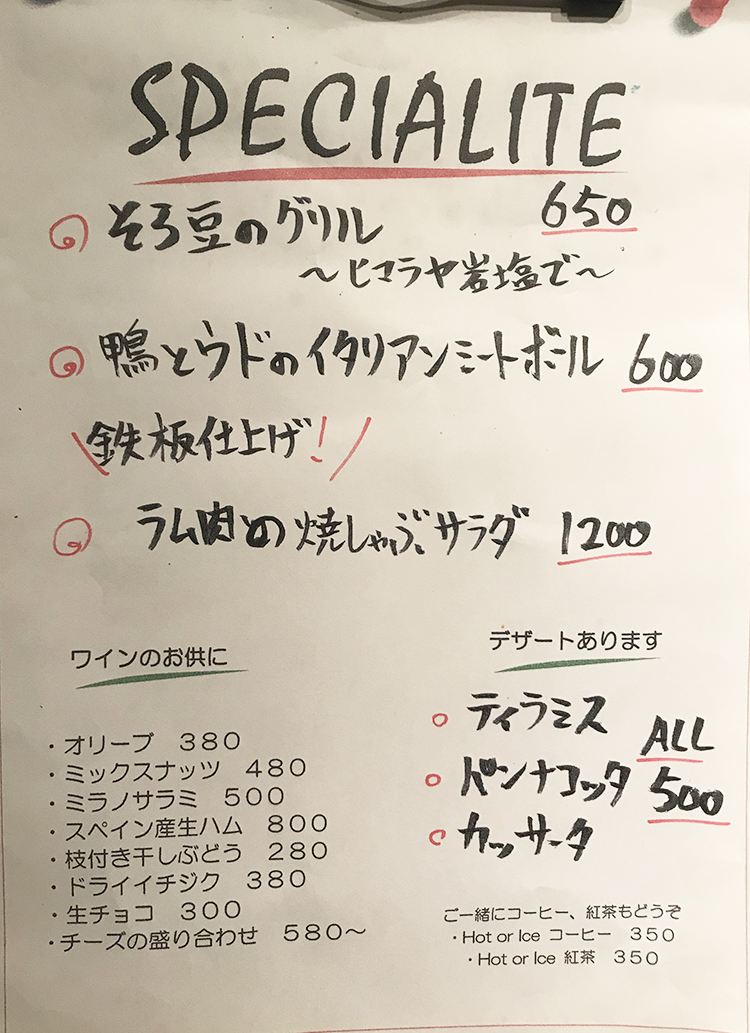 SPECIALITE
そら豆のグリル 650
〜ヒマラヤ岩塩で〜
鴨とウドのイタリアンミートボール 600
鉄板仕上げ!
ラム肉との焼しゃぶサラダ 1200
ワインのお供に
・オリーブ 380
・ミックスナッツ 480
・ミラノサラミ 500
・スペイン産生ハム 800
・枝付き干しぶどう 280
・ドライイチジク 380
・生チョコ 300
・チーズの盛り合わせ 580〜
デザートあります
ティラミス
パンナコッタ
カッサータ
ALL
500
ご一緒にコーヒー、紅茶もどうぞ
・Hot or Ice コーヒー 350
・Hot or Ice 紅茶 350